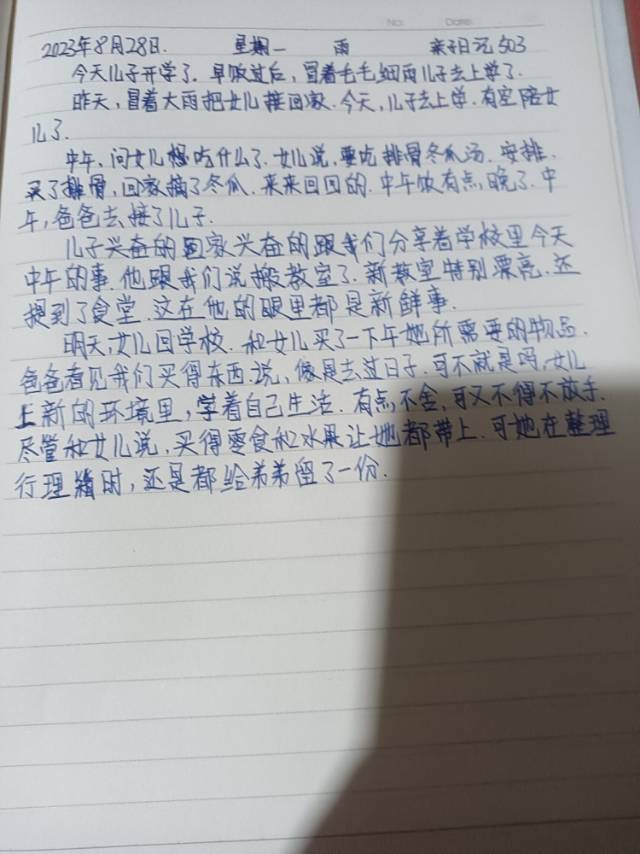 No: Date:
2023年8月28日. 星期一 雨 亲子日记503
今天儿子开学了. 早饭过后, 冒着毛毛细雨儿子去上学了.
昨天, 冒着大雨把女儿接回家. 今天, 儿子去上学. 有空陪女
儿了.
中午, 问女儿想吃什么了. 女儿说, 要吃排骨冬瓜汤. 安排.
买了排骨, 回家摘了冬瓜. 来来回回的. 中午饭有点, 晚了. 中
午, 爸爸去接了儿子.
儿子兴奋的回家兴奋的跟我们分享着学校里今天
中午的事. 他跟我们说搬教室了. 新教室特别漂亮. 还
提到了食堂. 这在他的眼里都是新鲜事.
明天, 女儿回学校. 和女儿买了一下午她所需要的物品.
爸爸看见我们买得东西. 说, 像是去过日子. 可不就是吗, 女儿
上新的环境里, 学着自己生活. 有点不舍, 可又不得不放手.
尽管和女儿说, 买得零食和水果让她都带上. 可她在整理
行理时, 还是都给弟弟留了一份.